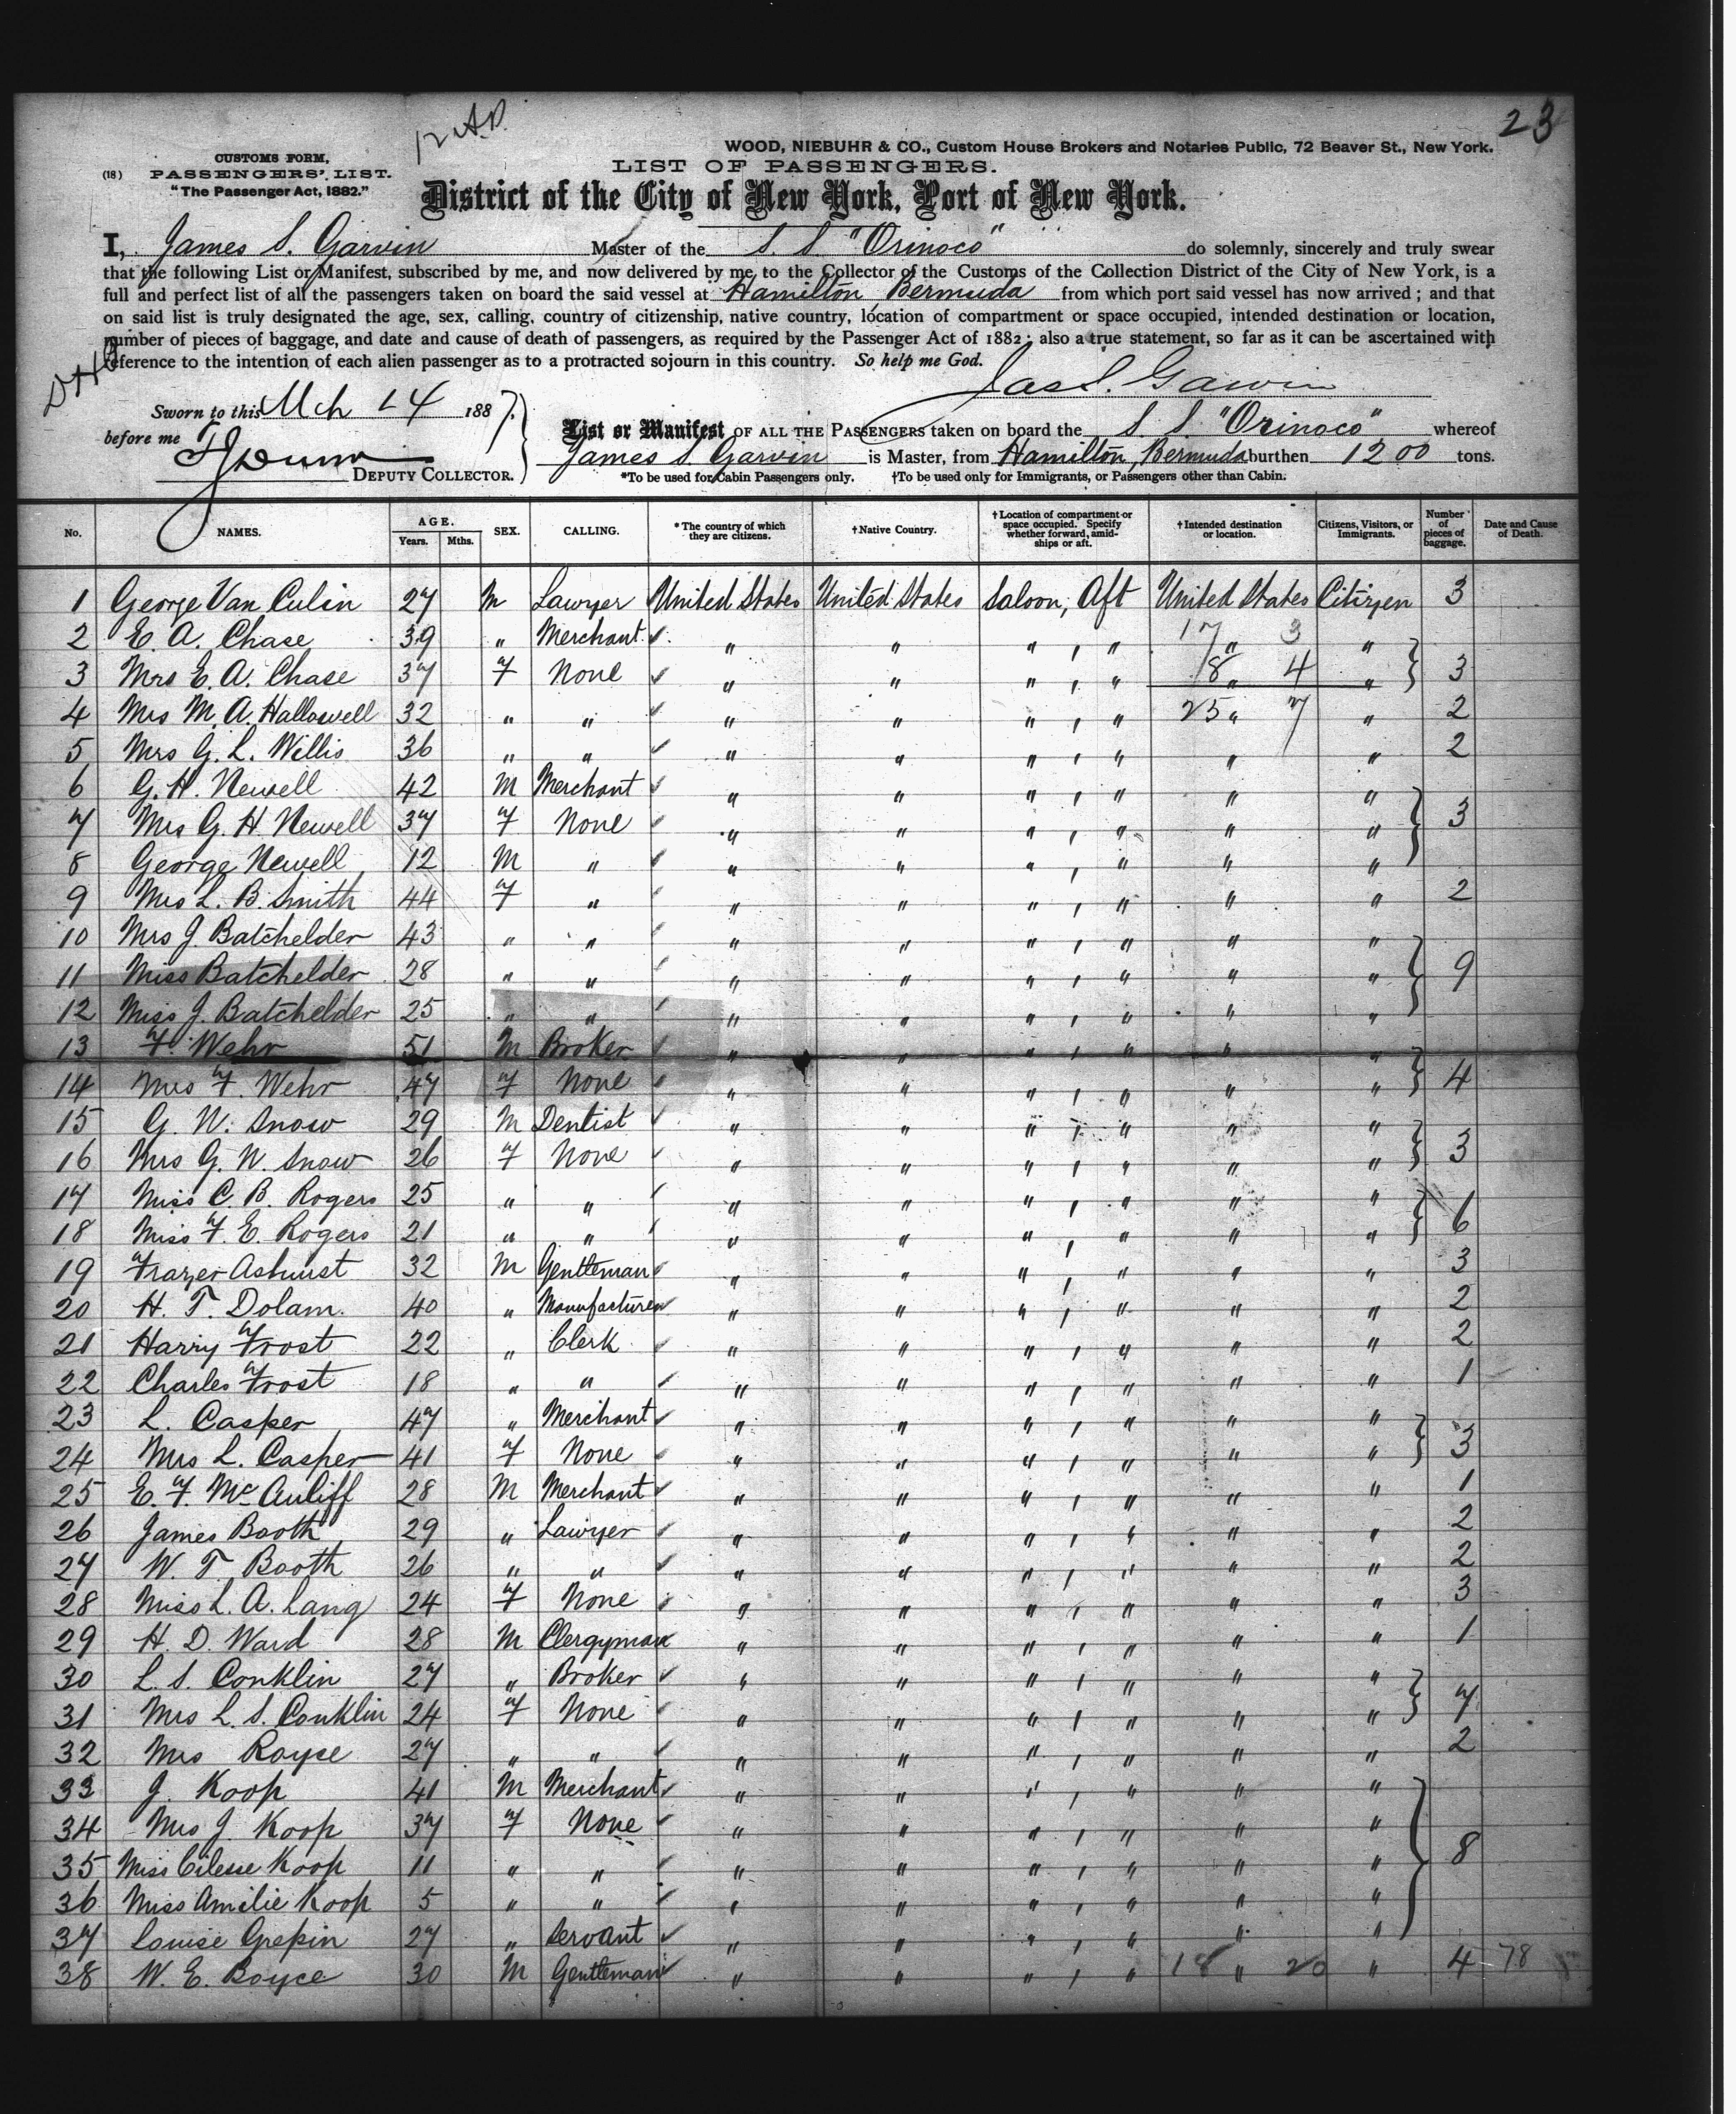 23
12 A.D.
WOOD, NIEBUHR & CO., Custom House Brokers and Notaries Public, 72 Beaver St., New York.
CUSTOMS FORM,
(18) PASSENGERS' LIST.
"The Passenger Act, 1882."
LIST OF PASSENGERS.
District of the City of New York, Port of New York.
I, James S. Garvin Master of the S. S "Orinoco" do solemnly, sincerely and truly swear
that the following List or Manifest, subscribed by me, and now delivered by me, to the Collector of the Customs of the Collection District of the City of New York, is a
full and perfect list of all the passengers taken on board the said vessel at Hamilton Bermuda from which port said vessel has now arrived ; and that
on said list is truly designated the age, sex, calling, country of citizenship, native country, location of compartment or space occupied, intended destination or location,
number of pieces of baggage, and date and cause of death of passengers, as required by the Passenger Act of 1882 ; also a true statement, so far as it can be ascertained with
reference to the intention of each alien passenger as to a protracted sojourn in this country. So help me God.
Jas S. Garvin
Sworn to this Mch 14 1887.
before me
DEPUTY COLLECTOR.
List or Manifest OF ALL THE PASSENGERS taken on board the S. S "Orinoco" whereof
James S. Garvin is Master, from Hamilton, Bermuda burthen 1200 tons.
*To be used for Cabin Passengers only. †To be used only for Immigrants, or Passengers other than Cabin.
No. NAMES. AGE. Years. Mths. SEX. CALLING. *The country of which they are citizens. †Native Country. †Location of compartment or space occupied. Specify whether forward, amidships or aft. †Intended destination or location. Citizens, Visitors, or Immigrants. Number of pieces of baggage. Date and Cause of Death.
1 George Van Culin 27 M Lawyer United States United States Saloon, Aft United States Citizen 3
2 E. A. Chase 39 " Merchant " " " , " 17 " 3 "
3 Mrs E. A. Chase 37 F None " " " , " 8 " 4 " 3
4 Mrs M. A. Hallowell 32 " " " " " , " 25 " 7 " 2
5 Mrs G. L. Willis 36 " " " " " , " " " 2
6 G. H. Newell 42 M Merchant " " " , " " "
7 Mrs G. H Newell 37 F None " " " , " " " 3
8 George Newell 12 M " " " " , " " "
9 Mrs L. B. Smith 44 F " " " " , " " " 2
10 Mrs J Batchelder 43 " " " " " , " " "
11 Miss Batchelder 28 " " " " " , " " " 9
12 Miss J. Batchelder 25 " " " " " , " " "
13 F. Wehr 51 M Broker " " " , " " "
14 Mrs F. Wehr 47 F None " " " , " " " 4
15 G. W. Snow 29 M Dentist " " " , " " "
16 Mrs G. W. Snow 26 F None " " " , " " " 3
17 Miss C. B. Rogers 25 " " " " " , " " "
18 Miss F. E. Rogers 21 " " " " " , " " " 6
19 Frazer Ashurst 32 M Gentleman " " " , " " " 3
20 H. T. Dolam. 40 " Manufacturer " " " , " " " 2
21 Harry Frost 22 " Clerk " " " , " " " 2
22 Charles Frost 18 " " " " " , " " " 1
23 L. Casper 47 " Merchant " " " , " " "
24 Mrs L. Casper 41 F None " " " , " " " 3
25 E. F. McAuliff 28 M Merchant " " " , " " " 1
26 James Booth 29 " Lawyer " " " , " " " 2
27 W. T. Booth 26 " " " " " , " " " 2
28 Miss L. A. Lang 24 F None " " " , " " " 3
29 H. D. Ward 28 M Clergyman " " " , " " " 1
30 L. S. Conklin 27 " Broker " " " , " " "
31 Mrs L. S. Conklin 24 F None " " " , " " " 7
32 Mrs Royce 27 " " " " " , " " " 2
33 J. Koop 41 M Merchant " " " , " " "
34 Mrs J. Koop 37 F None " " " , " " "
35 Miss Cilesse Koop 11 " " " " " , " " " 8
36 Miss Amilie Koop 5 " " " " " , " " "
37 Louise Grepin 27 " Servant " " " , " " "
38 W. E. Boyce 30 M Gentleman " " " , " 18 " 20 " 4 78